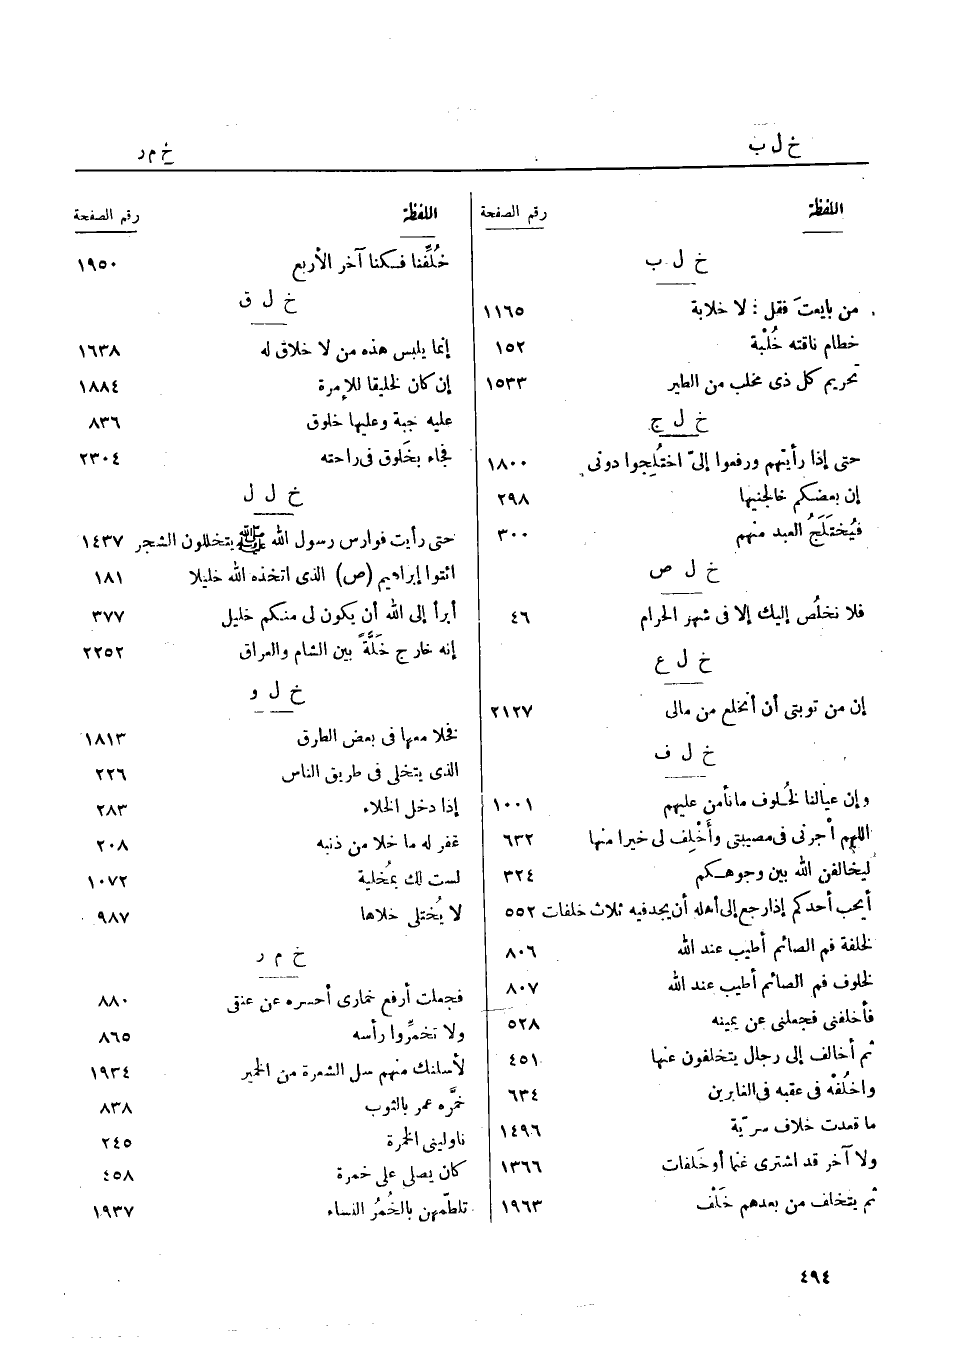 خ ل ب
خ م ر
اللفظة رقم الصفحة
خ ل ب
من بايعتَ فقل : لا خلابة ١١٦٥
خطام ناقته خُلْبة ١٥٢
تحريم كل ذى مخلب من الطير ١٥٣٣
خ ل ج
حتى إذا رأيتهم ورفعوا إلىّ اختُلِجوا دونى ١٨٠٠
إن بعضكم خالجنيها ٢٩٨
فيُختَلَجُ العبد منهم ٣٠٠
خ ل ص
فلا نخلُص إليك إلا فى شهر الحرام ٤٦
خ ل ع
إن من توبتى أن أنخلع من مالى ٢١٢٧
خ ل ف
وإن عيالنا لخُلوف مانأمن عليهم ١٠٠١
اللهم أجرنى فى مصيبتى وأَخْلِف لى خيرا منها ٦٣٢
ليخالفن الله بين وجوهكم ٣٢٤
أيحب أحدكم إذا رجع إلى أهله أن يجد فيه ثلاث خلفات ٥٥٢
لخلفة فم الصائم أطيب عند الله ٨٠٦
لخلوف فم الصائم أطيب عند الله ٨٠٧
فأخلفنى فجعلنى عن يمينه ٥٢٨
ثم أخالف إلى رجال يتخلفون عنها ٤٥١
واخلُفْه فى عقبه فى الغابرين ٦٣٤
ما قعدت خلاف سريّة ١٤٩٦
ولا آخر قد اشترى غنما أو خَلفات ١٣٦٦
ثم يتخلف من بعدهم خَلْف ١٩٦٣
اللفظة رقم الصفحة
خُلِّفنا فسكنا آخر الأربع ١٩٥٠
خ ل ق
إنما يلبس هذه من لا خلاق له ١٦٣٨
إن كان لخليقا للإمرة ١٨٨٤
عليه جبة وعليها خلوق ٨٣٦
فجاء بخَلوق فى راحته ٢٣٠٤
خ ل ل
حتى رأيت فوارس رسول الله ﷺ يتخللون الشجر ١٤٣٧
ائتوا إبراهيم (ص) الذى اتخذه الله خليلا ١٨١
أبرأ إلى الله أن يكون لى منكم خليل ٣٧٧
إنه خارج خَلَّةً بين الشام والعراق ٢٢٥٢
خ ل و
فخلا معها فى بعض الطرق ١٨١٣
الذى يتخلى فى طريق الناس ٢٢٦
إذا دخل الخلاء ٢٨٣
غفر له ما خلا من ذنبه ٢٠٨
لست لك بمُخلية ١٠٧٢
لا يُختلى خلاها ٩٨٧
خ م ر
فجعلت أرفع خمارى أحسره عن عنقى ٨٨٠
ولا تخمِّروا رأسه ٨٦٥
لأسلنك منهم سل الشعرة من الخمير ١٩٣٤
خمَّره عمر بالثوب ٨٣٨
ناولينى الخمرة ٢٤٥
كان يصلى على خمرة ٤٥٨
تلطّمهن بالخُمُرُ النساء ١٩٣٧
٤٩٤